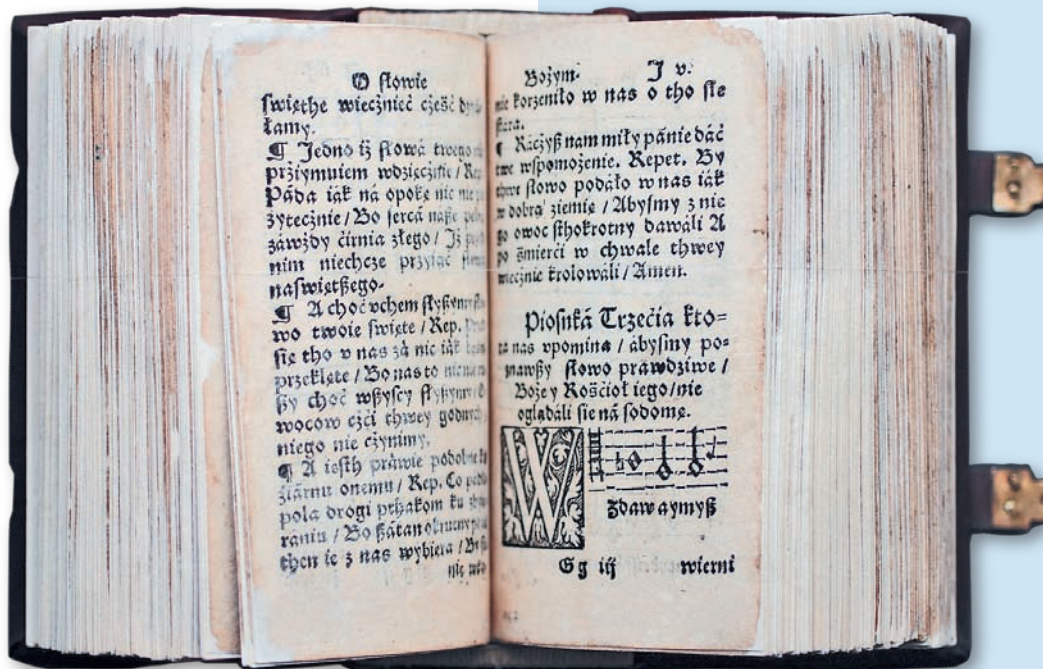 O słowie
święthe wiecżnieć cżeść
łamy.
¶ Jedno iż słowá twego
prżiymuiem wdzięcżnie /
Páda iák ná opokę nic nie
żytecżnie / Bo sercá náße
záwżdy ćirnia złego / Iż
nim niechcże przyiąć
naświętßego.
¶ A choć vchem słyßymy
wo twoie święte / Rep.
się tho v nas zá nic iák
przeklęte / Bo nas to
ßy choć wßyscy słyßymy /
wocow cżći thwey godnych
niego nie cżynimy.
¶ A iesth práwie podobne
żiárnu onemu / Rep. Co
polá drogi ptżakom ku
raniu / Bo ßátan okrutny
then ie z nas wybiera /
Bożym. J v.
nie korzeniło w nas o tho sie
¶ Racżyß nam miły pánie dáć
twe wspomożenie. Repet. By
thwe słowo podáło w nas iák
w dobrą ziemię / Abyśmy z nie
go owoc sthokrotny dawáli A
po śmierći w chwale thwey
wiecżnie krolowáli / Amen.
Piosnká Trzećia kto=
ra nas vpomina / ábyśmy po=
znawßy słowo prawdżiwe /
Boże y Kośćioł iego / nie
oglądáli sie ná sodomę.
W
Zdaw aymyß
Gg iij wierni